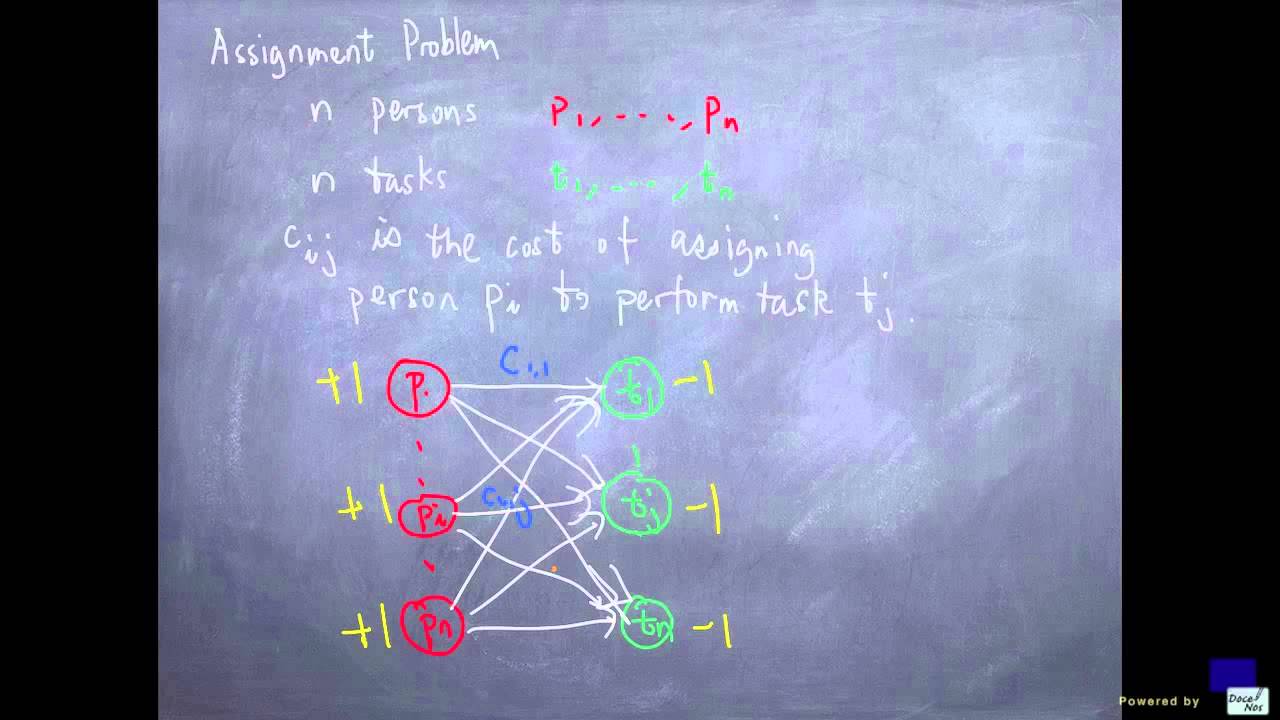 Assignment Problem
n persons p1, ...., pn
n tasks t1, ...., tn
cij is the cost of assigning
person pi to perform task tj.
+1 p1 C1,1 t1 -1
+1 pi ci,j tj -1
+1 pn tn -1
Powered by DoceNos